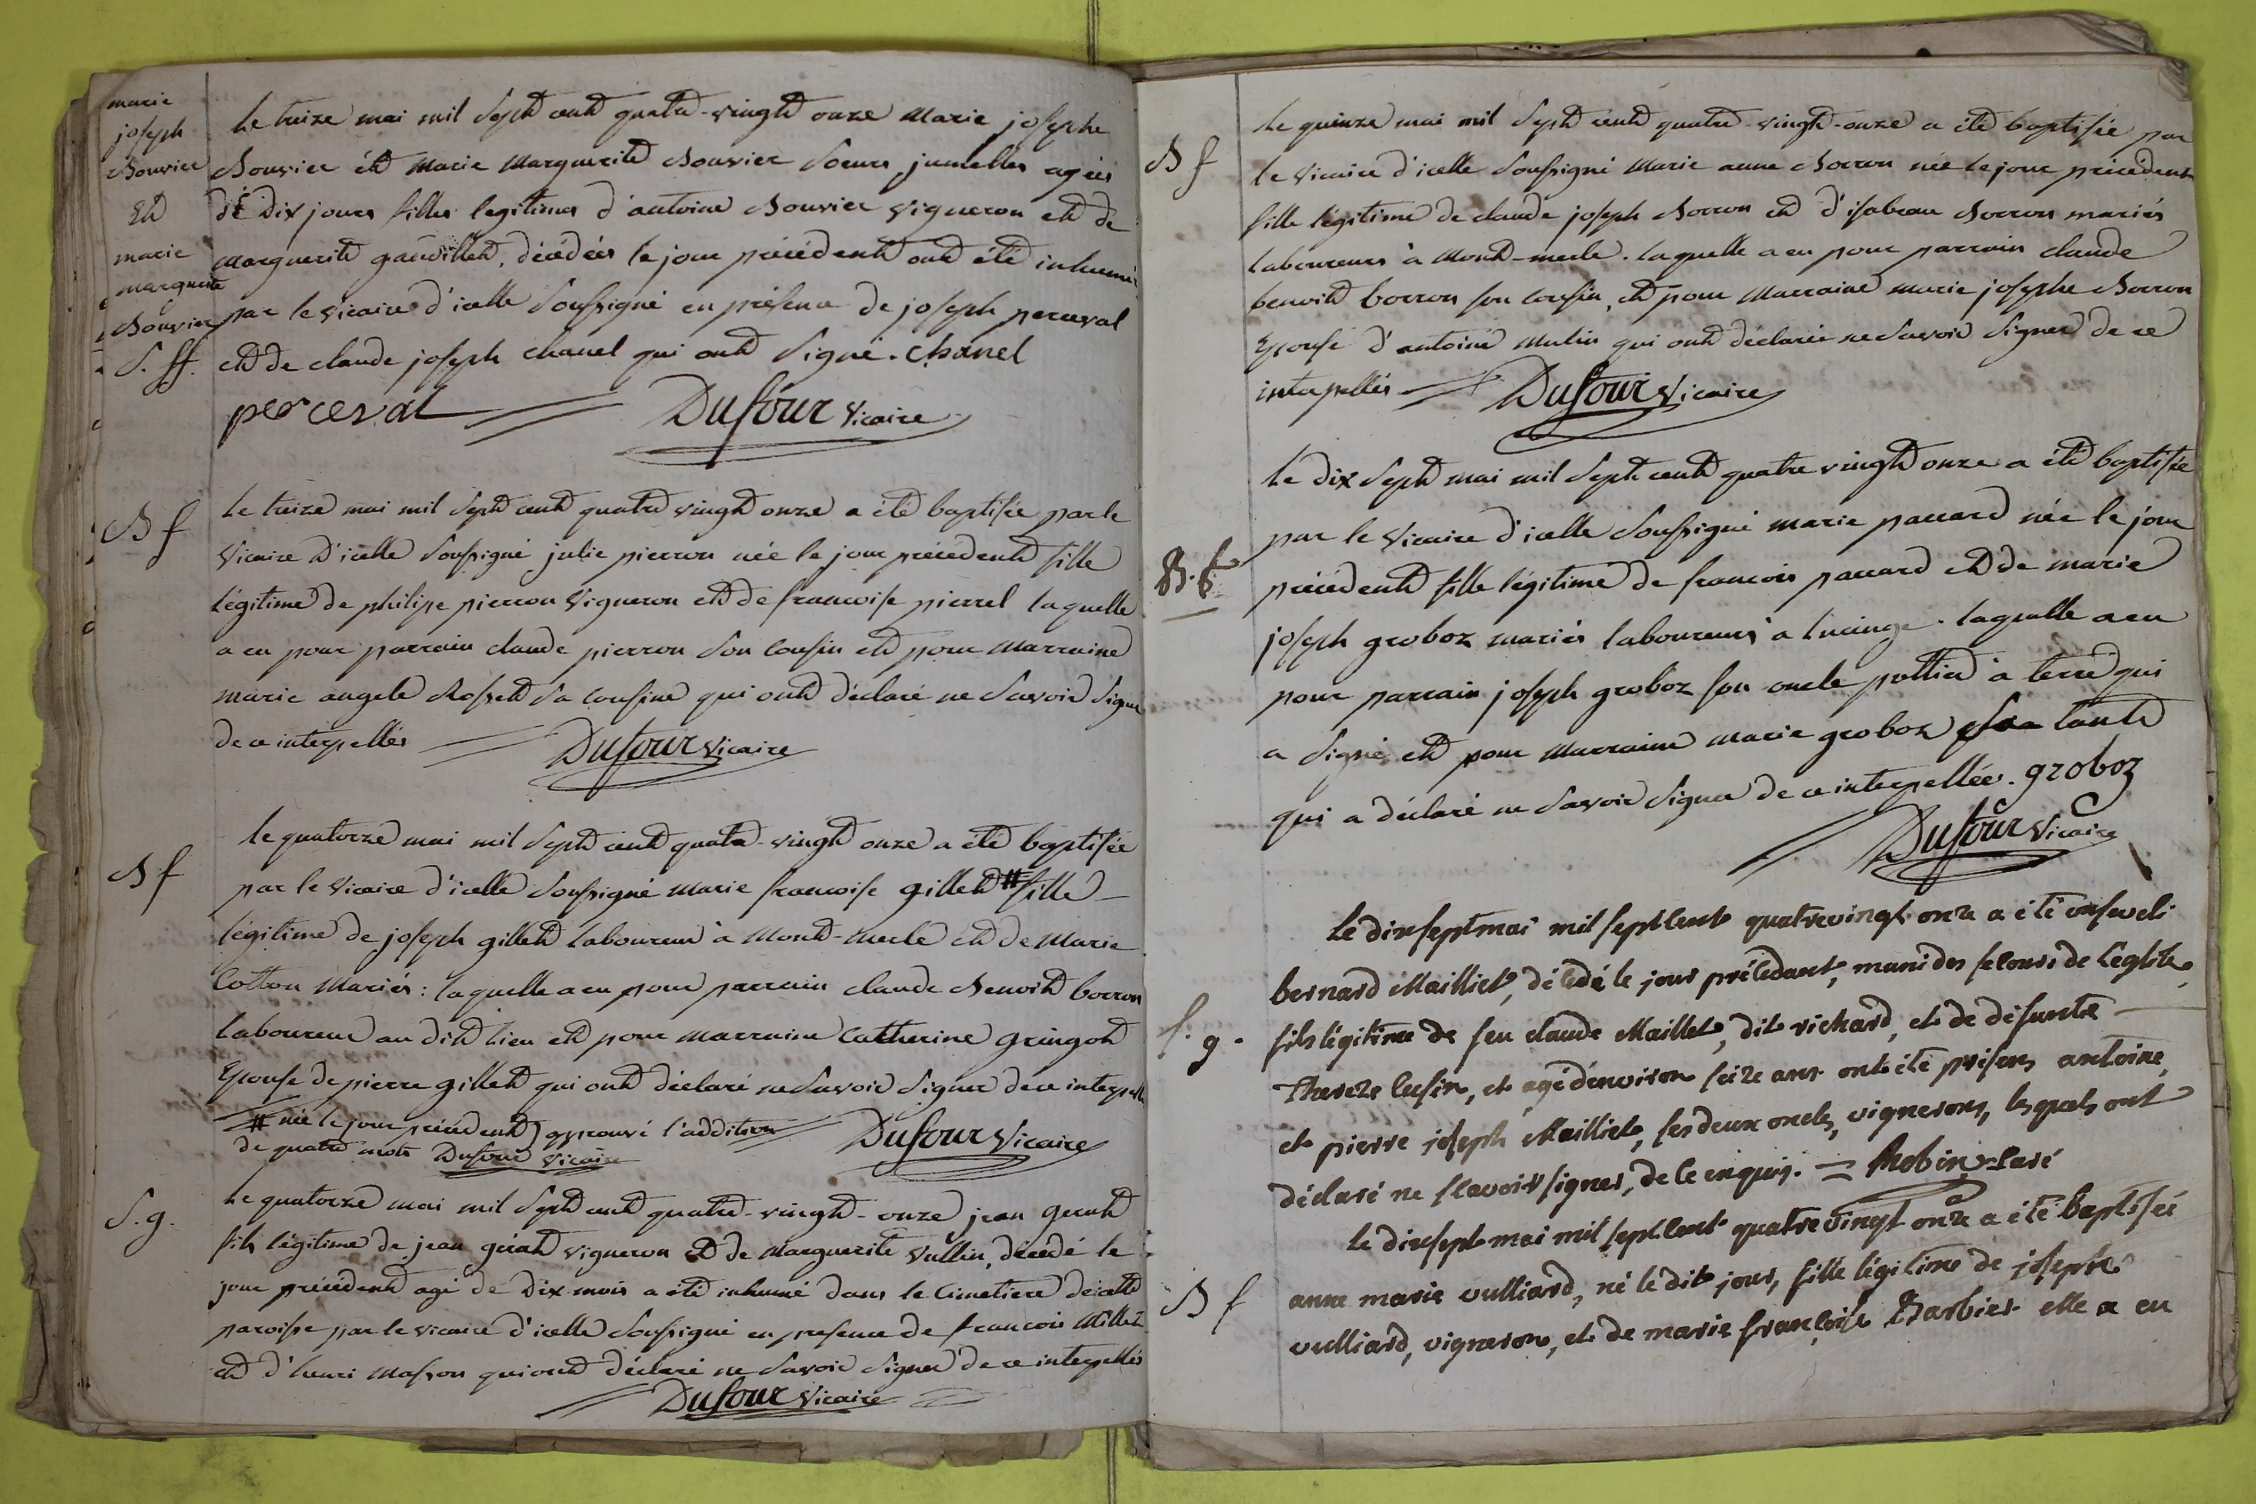 marie
joseph
Bouvier
Et
marie
marguerite
Bouvier
S. ff.
Le treize mai mil sept cent quatre-vingt onze Marie josephe
Bouvier et Marie Marguerite Bouvier soeurs jumelles agées
de dix jours filles legitimes d'antoine Bouvier vigneron et de
marguerite gaudillet, décédées le jour précédent ont été inhumées
par le vicaire d'icelle soussigné en présence de joseph perceval
et de claude joseph chanel qui ont signé. Chanel
perceval Dufour vicaire
B f
Le treize mai mil sept cent quatre vingt onze a été baptisée par le
vicaire d'icelle soussigné julie pierron née le jour précédent fille
légitime de philipe pierron vigneron et de francoise pierrel laquelle
a eu pour parrain claude pierron son cousin et pour marraine
marie angele Rosset sa cousine qui ont déclaré ne savoir signer
de ce interpellés Dufour vicaire
B f
le quatorze mai mil sept cent quatre-vingt onze a été baptisée
par le vicaire d'icelle soussigné marie francoise gillet # fille
légitime de joseph gillet laboureur à Mont-merle et de Marie
Cotton Mariés : laquelle a eu pour parrain claude Benoit borron
laboureur au dit lieu et pour marraine Catherine gringot
Epouse de pierre gillet qui ont déclaré ne savoir signer de ce interpellés
# née le jour précédent) approuvé l'addition Dufour Vicaire
de quatre mots Dufour vicaire
S. g.
Le quatorze mai mil sept cent quatre-vingt-onze jean
fils légitime de jean vigneron et de Marguerite Vullin, décédé le
jour précédent agé de dix mois a été inhumé dans le Cimetiere de cette
paroisse par le vicaire d'icelle soussigné en presence de francois Millet
et d'henri Masson qui ont déclaré ne savoir signer de ce interpellés
Dufour vicaire
B f
Le quinze mai mil sept cent quatre-vingt-onze a été baptisée par
le vicaire d'icelle soussigné Marie anne Borron née le jour précédent
fille légitime de claude joseph Borron et d'isabeau Borron mariés
laboureurs à Mont-merle. laquelle a eu pour parrain claude
benoit borron son cousin, et pour Marraine marie josephe Borron
Epouse d'antoine Mulin qui ont déclaré ne savoir signer de ce
interpellés Dufour Vicaire
B. f
Le dix sept mai mil sept cent quatre vingt onze a été baptisée
par le vicaire d'icelle soussigné marie paccard née le jour
précédent fille légitime de francois paccard et de marie
joseph groboz mariés laboureurs à . laquelle a eu
pour parrain joseph groboz son oncle pottier à terre qui
a signé et pour marraine marie groboz sa tante
qui a déclaré ne savoir signer de ce interpellée. groboz
Dufour Vicaire
S. g.
Le dixsept mai mil sept cent quatre vingt onze a été enseveli
bernard Mailliet, décédé le jour précédant, muni des secours de l'eglise,
fils légitime de feu claude Maillet, dit richard, et de défunte
Thereze lusin, et agé d'environ seize ans ont été présens antoine,
et pierre joseph Mailliet, ses deux oncles, vignerons, lesquels ont
déclaré ne scavoir signer, de ce enquis. = Robin curé
B f
le dixsept mai mil sept cent quatre vingt onze a été baptisée
anne marie vulliard, né le dit jour, fille légitime de joseph
vulliard, vigneron, et de marie françoise Barbier elle a eu